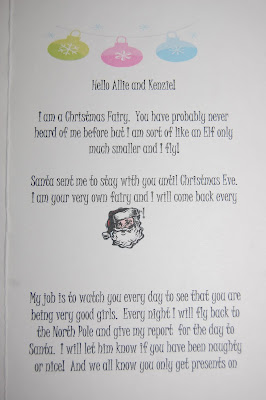 Hello Allie and Kenzie!
I am a Christmas Fairy. You have probably never
heard of me before but I am sort of like an Elf only
much smaller and I fly!
Santa sent me to stay with you until Christmas Eve.
I am your very own fairy and I will come back every
r!
My job is to watch you every day to see that you are
being very good girls. Every night I will fly back to
the North Pole and give my report for the day to
Santa. I will let him know if you have been naughty
or nice! And we all know you only get presents on